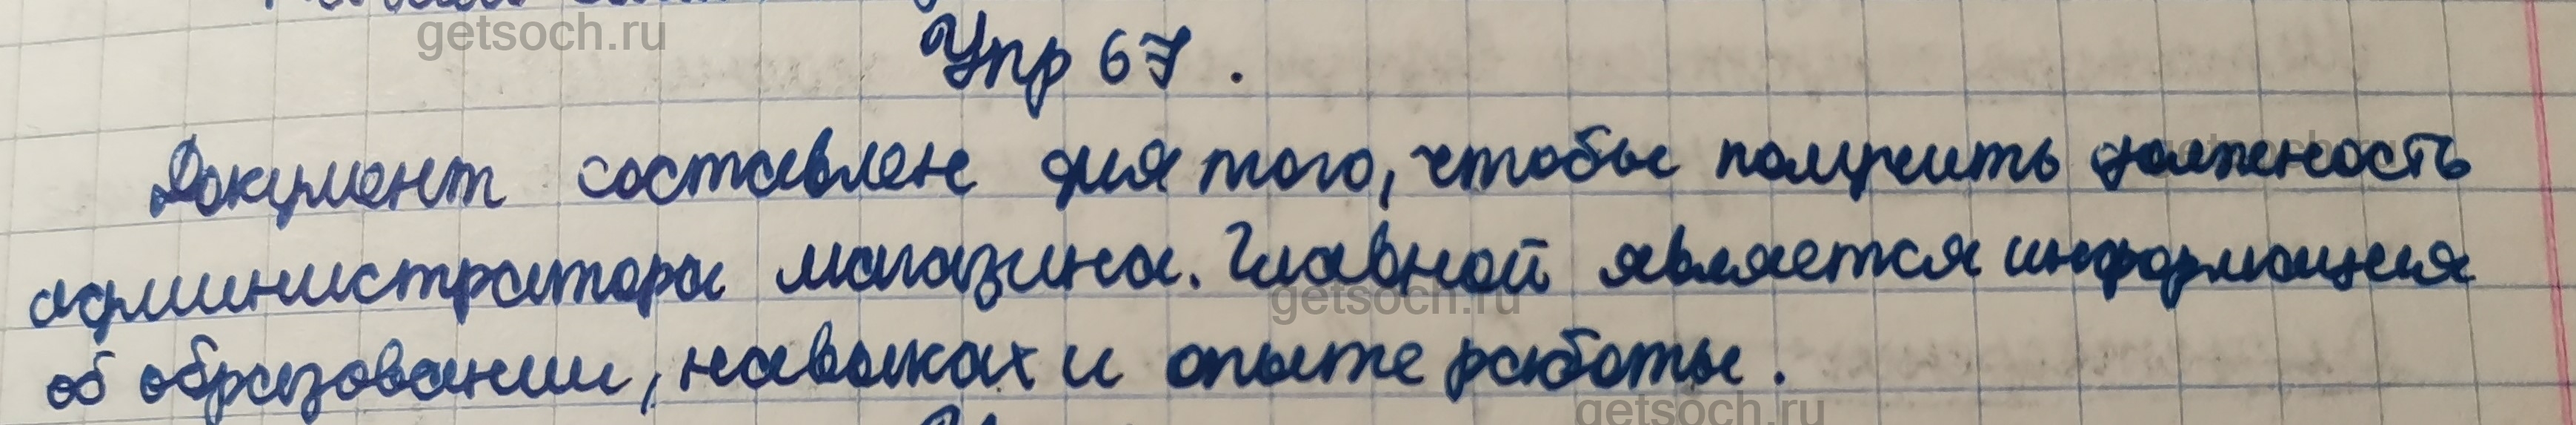 getsoch.ru
Упр 67.
Документ составлен для того, чтобы получить должность
администратора магазина. Главной является информация
getsoch.ru
об образовании, навыках и опыте работы.
getsoch.ru